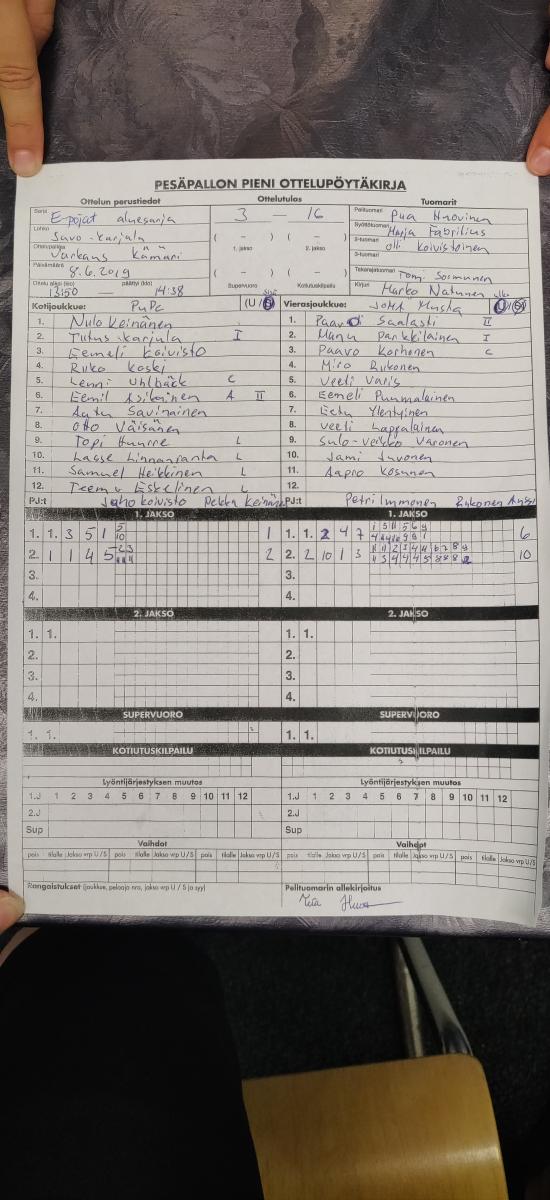 PESÄPALLON PIENI OTTELUPÖYTÄKIRJA
Ottelun perustiedot
Sarja E-pojat aluesarja
Lohko Savo-Karjala
Ottelupaikka Varkaus Kämäri
Päivämäärä 8.6.2019
Ottelu alkoi (klo) 13:50 — päättyi (klo) 14:38
Ottelutulos
3 — 16
( – ) ( – )
1. jakso 2. jakso
( – ) ( – )
Supervuoro Kotiutuskilpailu
Tuomarit
Pelituomari
Syöttötuomari Marja Fabritius
2-tuomari Olli Koivistoinen
3-tuomari
Takarajatuomari Tomi Sormunen
Kirjuri Marko Natunen
Kotijoukkue: PuPe (U/S)
1. Nuto Keinänen
2. Tutus Karjula I
3. Eemeli Koivisto
4. Ruko Koski
5. Lenni Uhlbäck C
6. Eemil Asikainen A II
7. Aatu Savinainen
8. Otto Väisänen
9. Topi Huurre L
10. Lasse Linnanranta L
11. Samuel Heikkinen L
12. Teemu Eskelinen L
PJ:t Juho Koivisto Pekka Keinänen
Vierasjoukkue: JoMa Musta (U/S)
1. Paavo Saalasti II
2. Manu Pankkilainen I
3. Paavo Korhonen C
4. Miro Riikonen
5. Veeti Varis
6. Eemeli Puumalainen
7. Eetu Ylentyinen
8. Veeti Lappalainen
9. Sulo-Veikko Varonen
10. Jami Juvonen
11. Aapro Kosunen
12.
PJ:t Petri Immonen Riikonen
1. JAKSO
1. 1. 3 5 1 5 10 1
2. 1 1 4 5 2
3.
4.
2. JAKSO
1. 1.
2.
3.
4.
SUPERVUORO
1. 1.
KOTIUTUSKILPAILU
1. JAKSO
1. 1. 2 4 7 6
2. 2 10 1 3 10
3.
4.
2. JAKSO
1. 1.
2.
3.
4.
SUPERVUORO
1. 1.
KOTIUTUSKILPAILU
Lyöntijärjestyksen muutos
1.J 1 2 3 4 5 6 7 8 9 10 11 12
2.J
Sup
Vaihdot
pois tilalle Jakso vrp U/S pois tilalle Jakso vrp U/S pois tilalle Jakso vrp U/S
Lyöntijärjestyksen muutos
1.J 1 2 3 4 5 6 7 8 9 10 11 12
2.J
Sup
Vaihdot
pois tilalle Jakso vrp U/S pois tilalle Jakso vrp U/S pois tilalle Jakso vrp U/S
Rangaistukset (joukkue, pelaaja nro, jakso vrp U / S ja syy)
Pelituomarin allekirjoitus